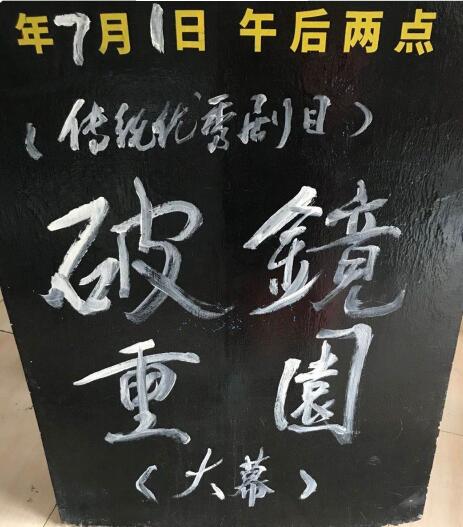 年7月1日 午后两点
（传统优秀剧目）
破鏡
重園
（大幕）